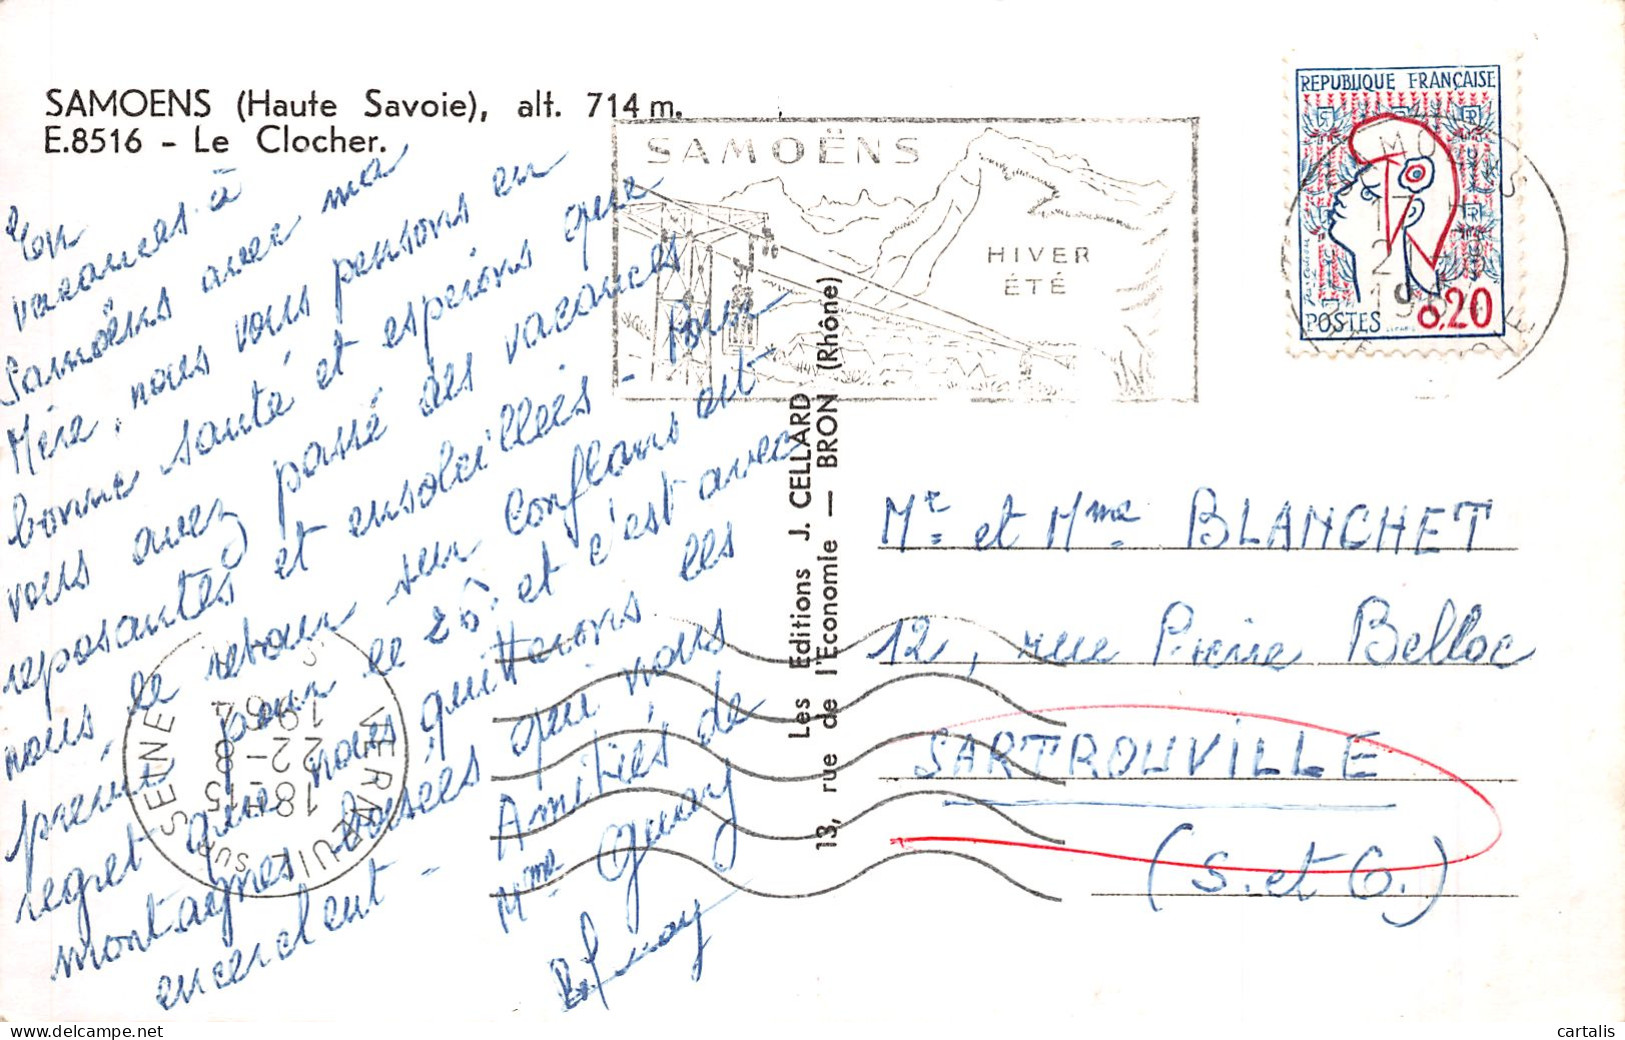 SAMOENS (Haute Savoie), alt. 714 m.
E.8516 - Le Clocher.
En
vacances à
Samoëns avec ma
Mère, nous vous pensons en
bonne santé et espérons que
vous avez passé des vacances
reposantes et ensoleillées - Pour
nous, le retour sur Conflans est
prévu pour le 26 et c'est avec
regret que nous quitterons les
montagnes boisées qui nous
encerclent - Amitiés de
Mme
SAMOËNS
HIVER
ÉTÉ
REPUBLIQUE FRANÇAISE
POSTES 0,20
VERNEUIL SUR SEINE
18H15
22-8
1964
Les Editions J. CELLARD
13, rue de l'Economie — BRON (Rhône)
Mr et Mme BLANCHET
12, rue Pierre Belloc
SARTROUVILLE
(S. et O.)
cartalis